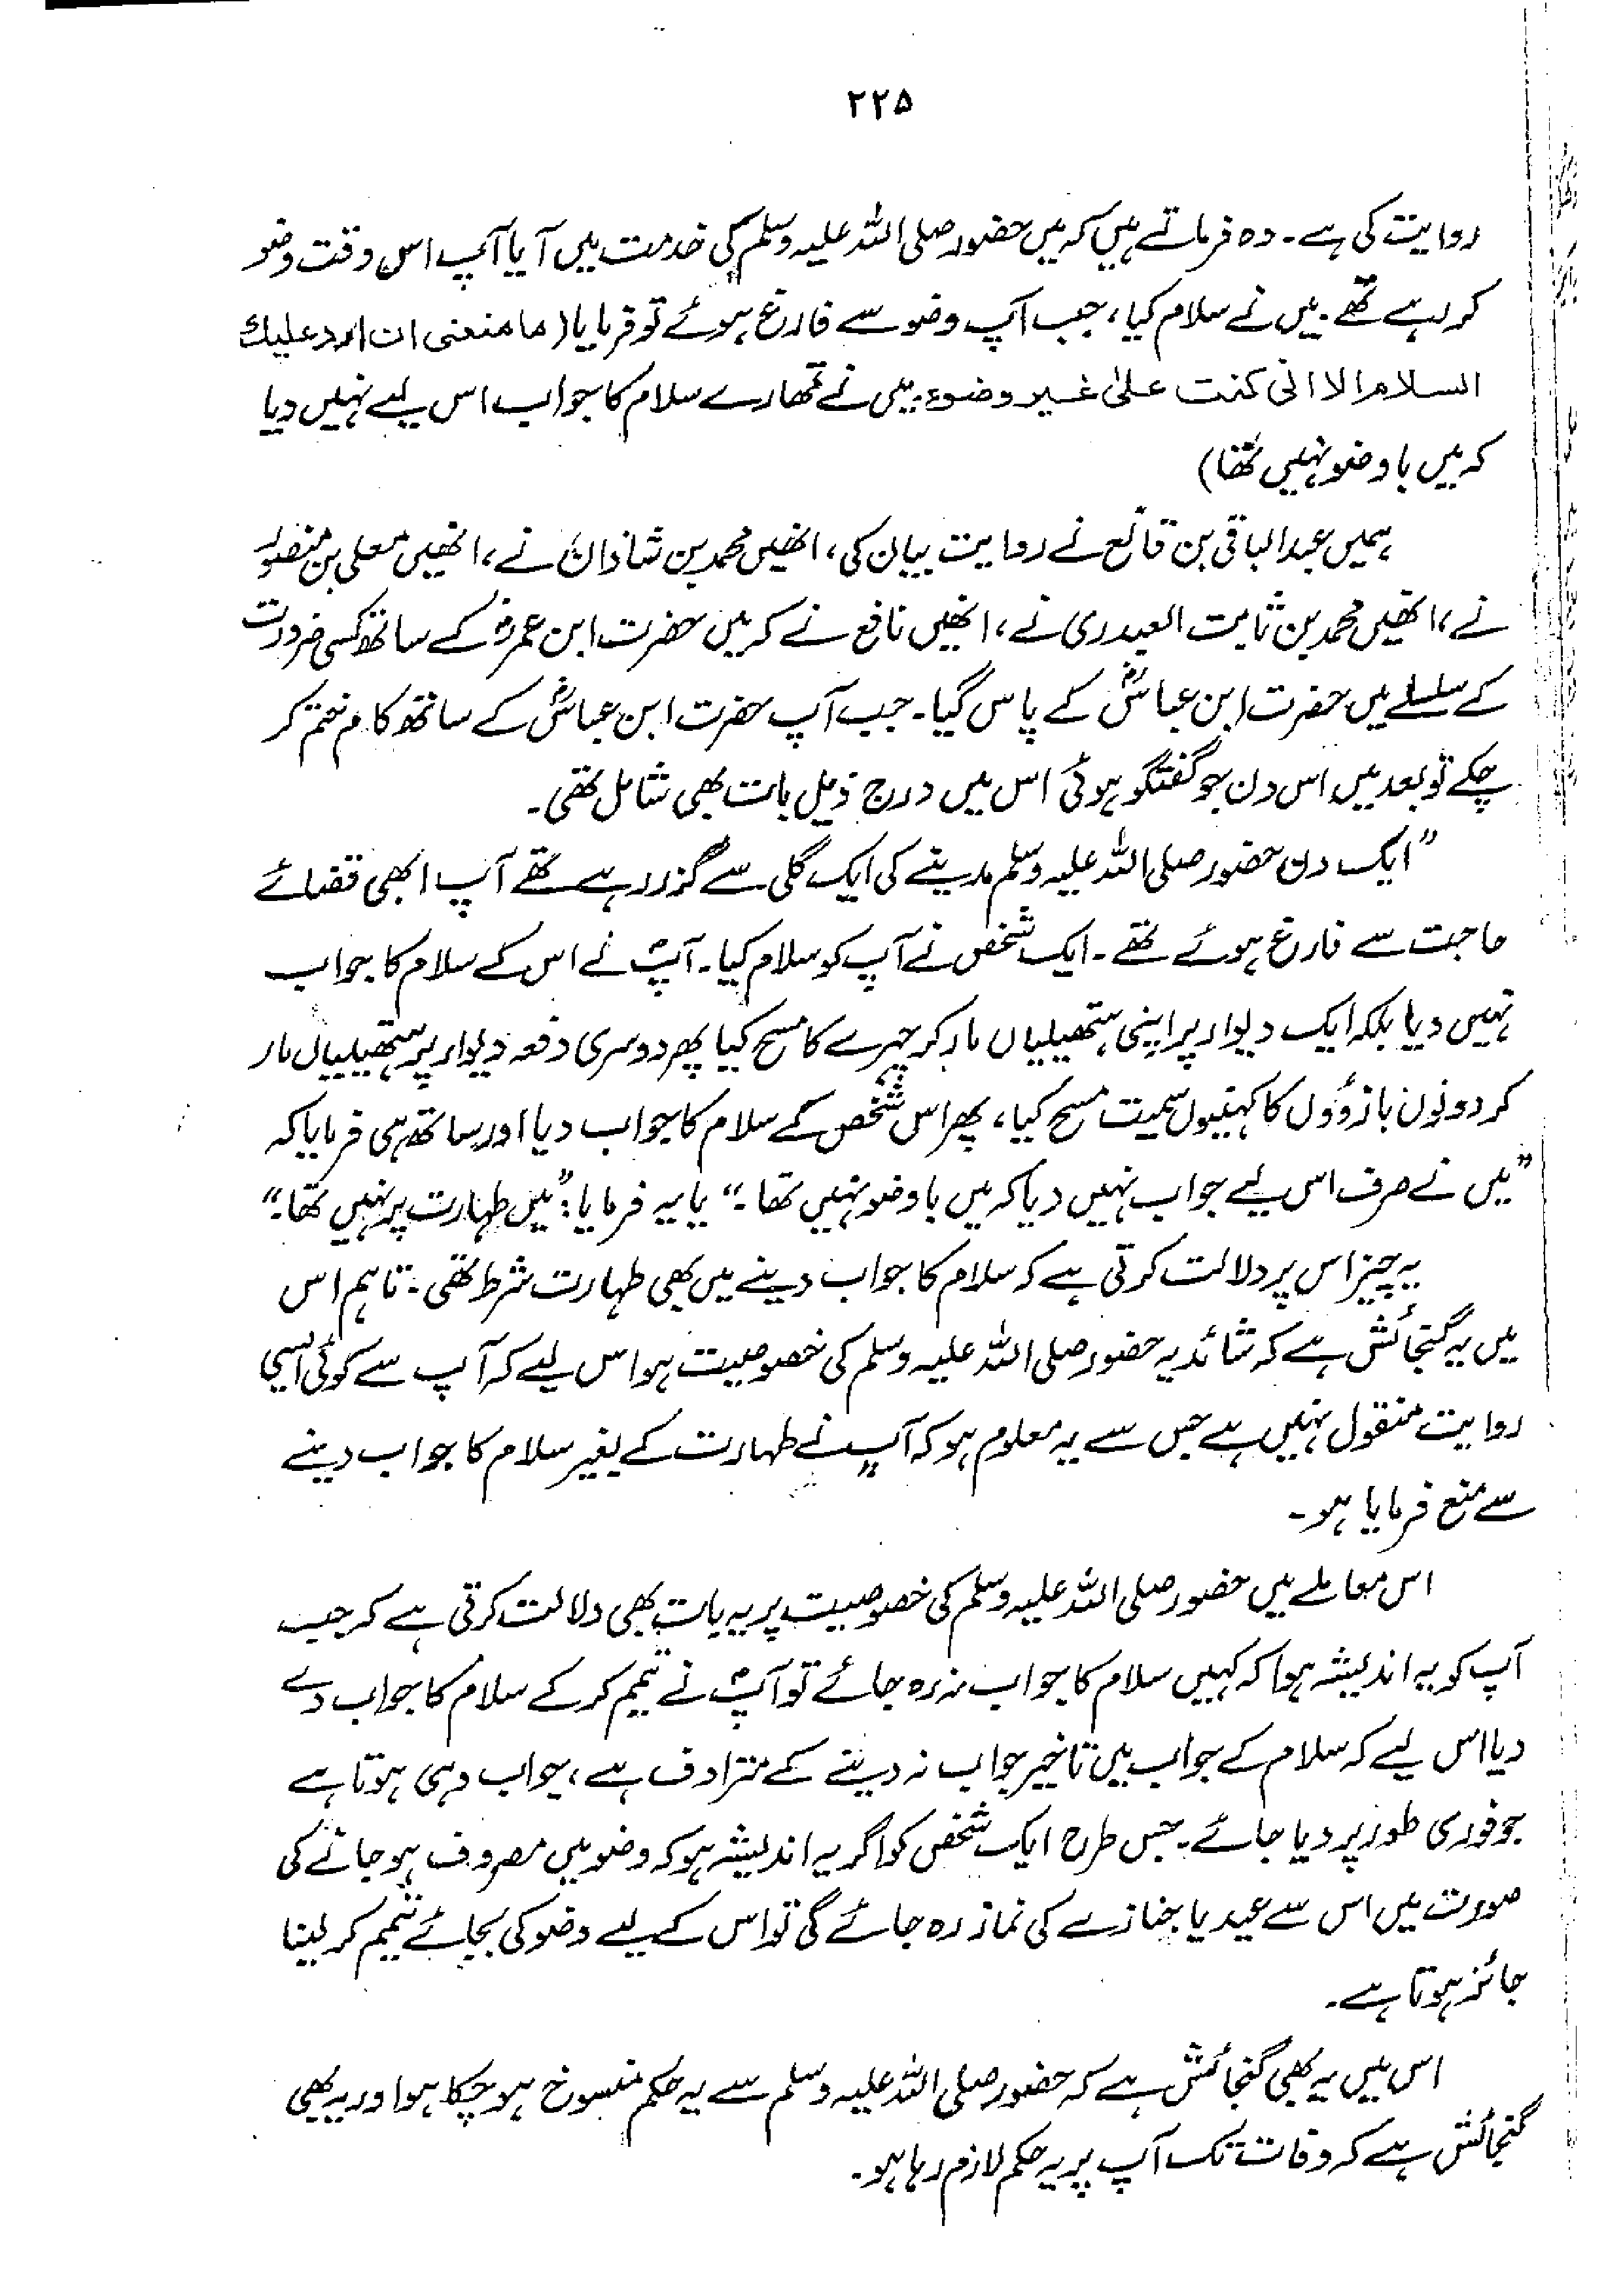 ۲۲۵
روایت کی ہے۔ وہ فرماتے ہیں کہ میں حضور صلی اللہ علیہ وسلم کی خدمت میں آیا آپ اس وقت وضو
کر رہے تھے۔ میں نے سلام کیا، جب آپ وضو سے فارغ ہوئے تو فرمایا (ما منعنی ان ارد علیك
السلام الا انی کنت علیٰ غیر وضوء۔ میں نے تمھارے سلام کا جواب اس لیے نہیں دیا
کہ میں با وضو نہیں تھا)
ہمیں عبدالباقی بن قانع نے روایت بیان کی، انھیں محمد بن شاذان نے، انھیں معلی بن منصور
نے، انھیں محمد بن ثابت العبدری نے، انھیں نافع نے کہ میں حضرت ابن عمرؓ کے ساتھ کسی ضرورت
کے سلسلے میں حضرت ابن عباسؓ کے پاس گیا۔ جب آپ حضرت ابن عباسؓ کے ساتھ کام ختم کر
چکے تو بعد میں اس دن جو گفتگو ہوئی اس میں درج ذیل بات بھی شامل تھی۔
”ایک دن حضور صلی اللہ علیہ وسلم مدینے کی ایک گلی سے گزر رہے تھے آپ ابھی قضائے
حاجت سے فارغ ہوئے تھے۔ ایک شخص نے آپ کو سلام کیا۔ آپؐ نے اس کے سلام کا جواب
نہیں دیا بلکہ ایک دیوار پر اپنی ہتھیلیاں مار کر چہرے کا مسح کیا پھر دوسری دفعہ دیوار پر ہتھیلیاں مار
کر دونوں بازوؤں کا کہنیوں سمیت مسح کیا، پھر اس شخص کے سلام کا جواب دیا اور ساتھ ہی فرمایا کہ
”میں نے صرف اس لیے جواب نہیں دیا کہ میں با وضو نہیں تھا۔“ یا یہ فرمایا: ”میں طہارت پر نہیں تھا۔“
یہ چیز اس پر دلالت کرتی ہے کہ سلام کا جواب دینے میں بھی طہارت شرط تھی۔ تاہم اس
میں یہ گنجائش ہے کہ شائد یہ حضور صلی اللہ علیہ وسلم کی خصوصیت ہو اس لیے کہ آپ سے کوئی ایسی
روایت منقول نہیں ہے جس سے یہ معلوم ہو کہ آپ نے طہارت کے بغیر سلام کا جواب دینے
سے منع فرمایا ہو۔
اس معاملے میں حضور صلی اللہ علیہ وسلم کی خصوصیت پر یہ بات بھی دلالت کرتی ہے کہ جب
آپ کو یہ اندیشہ ہوا کہ کہیں سلام کا جواب نہ رہ جائے تو آپؐ نے تیمم کر کے سلام کا جواب دے
دیا اس لیے کہ سلام کے جواب میں تاخیر جواب نہ دینے کے مترادف ہے، جواب وہی ہوتا ہے
جو فوری طور پر دیا جائے۔ جس طرح ایک شخص کو اگر یہ اندیشہ ہو کہ وضو میں مصروف ہو جانے کی
صورت میں اس سے عید یا جنازے کی نماز رہ جائے گی تو اس کے لیے وضو کی بجائے تیمم کر لینا
جائز ہوتا ہے۔
اس میں یہ بھی گنجائش ہے کہ حضور صلی اللہ علیہ وسلم سے یہ حکم منسوخ ہو چکا ہو اور یہ بھی
گنجائش ہے کہ وفات تک آپ پر یہ حکم لازم رہا ہو۔